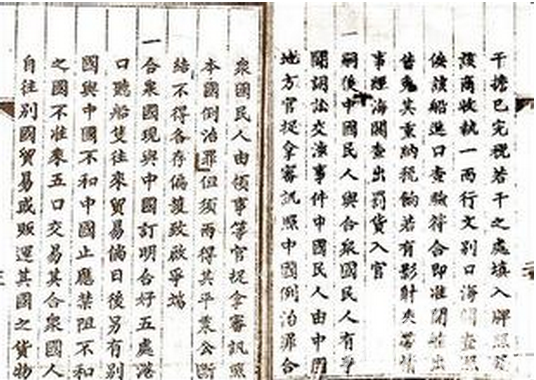 干擔已完稅若干之處填入牌照
該商收執一面行文別口海關查照
俟該船進口查驗符合即准開艙出
售免其重納稅餉若有影射夾帶情
事經海關查出罰貨入官
一嗣後中國民人與合眾國民人有爭
鬭詞訟交涉事件中國民人由中國
地方官捉拿審訊照中國例治罪合
眾國民人由領事等官捉拿審訊照
本國例治罪但須兩得其平秉公斷
結不得各存偏護致啟爭端
一合眾國現與中國訂明合好五處港
口聽船隻往來貿易倘日後另有別
國與中國不和中國止應禁阻不和
之國不准來五口交易其合眾國人
自往別國貿易或販運其國之貨物